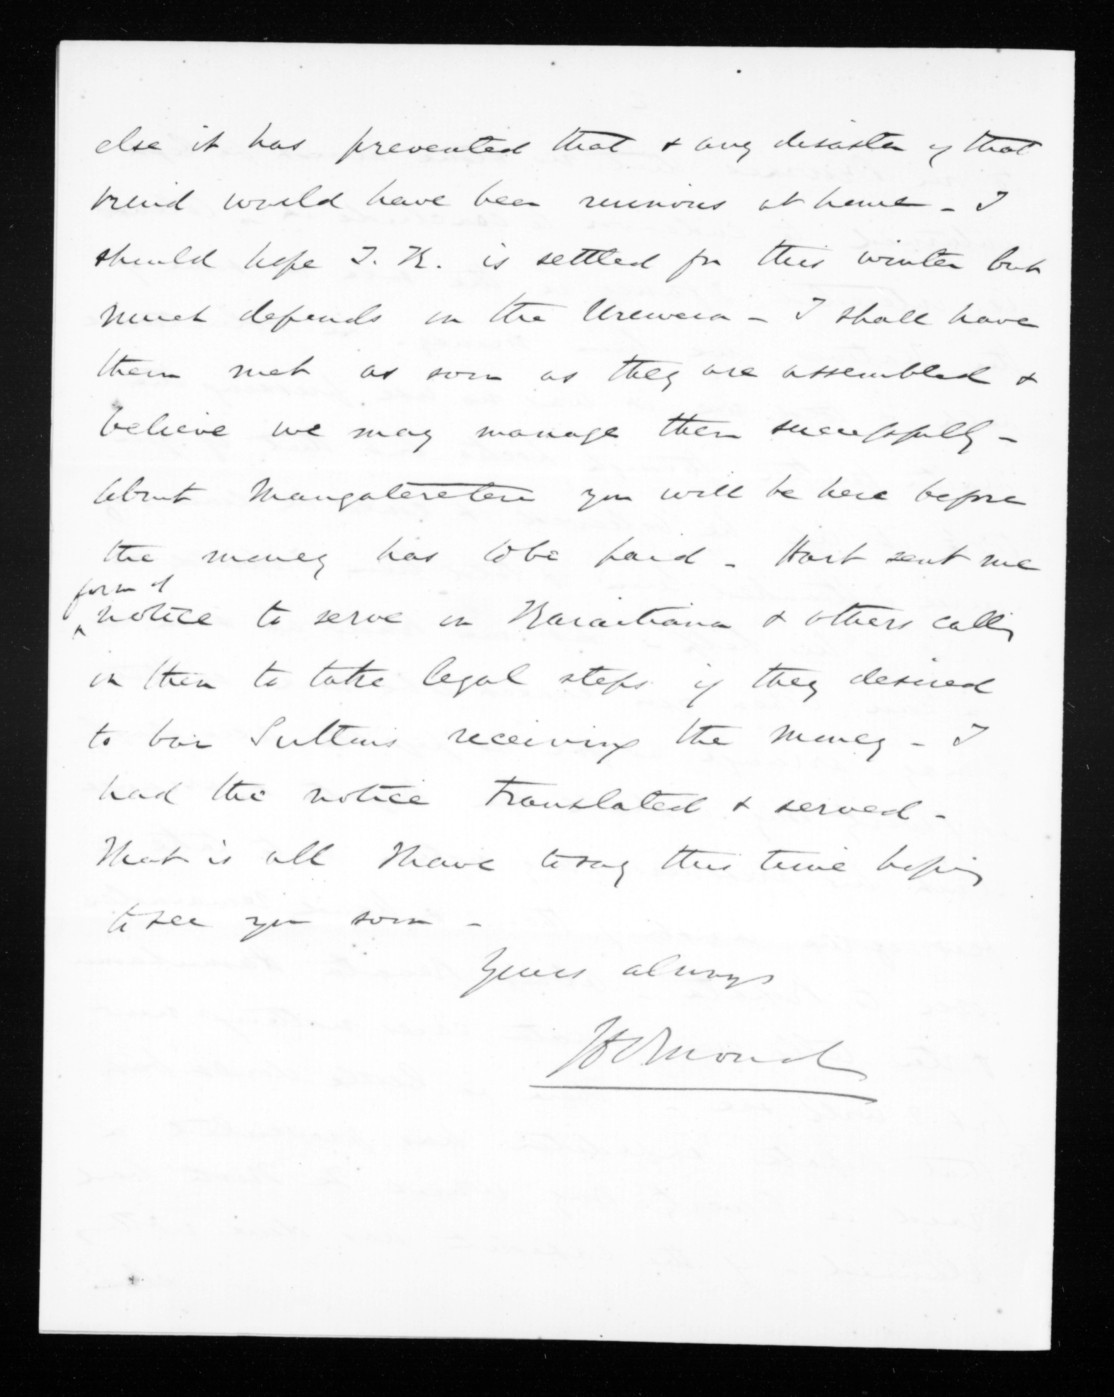 else it has prevented that & any disaster of that
kind would have been ruinous at home - I
should hope T.K. is settled for this winter but
much depends on the Urewera - I shall have
them met as soon as they are assembled &
believe we may manage them successfully -
About Mangateretere you will be here before
the money has to be paid - Hart sent me
form of
notice to serve on Karaitiana & others calling
on them to take legal steps if they desired
to bar Suttons receiving the money - I
had the notice translated & served -
That is all I have to say this time hoping
to see you soon -
Yours always
JD Ormond